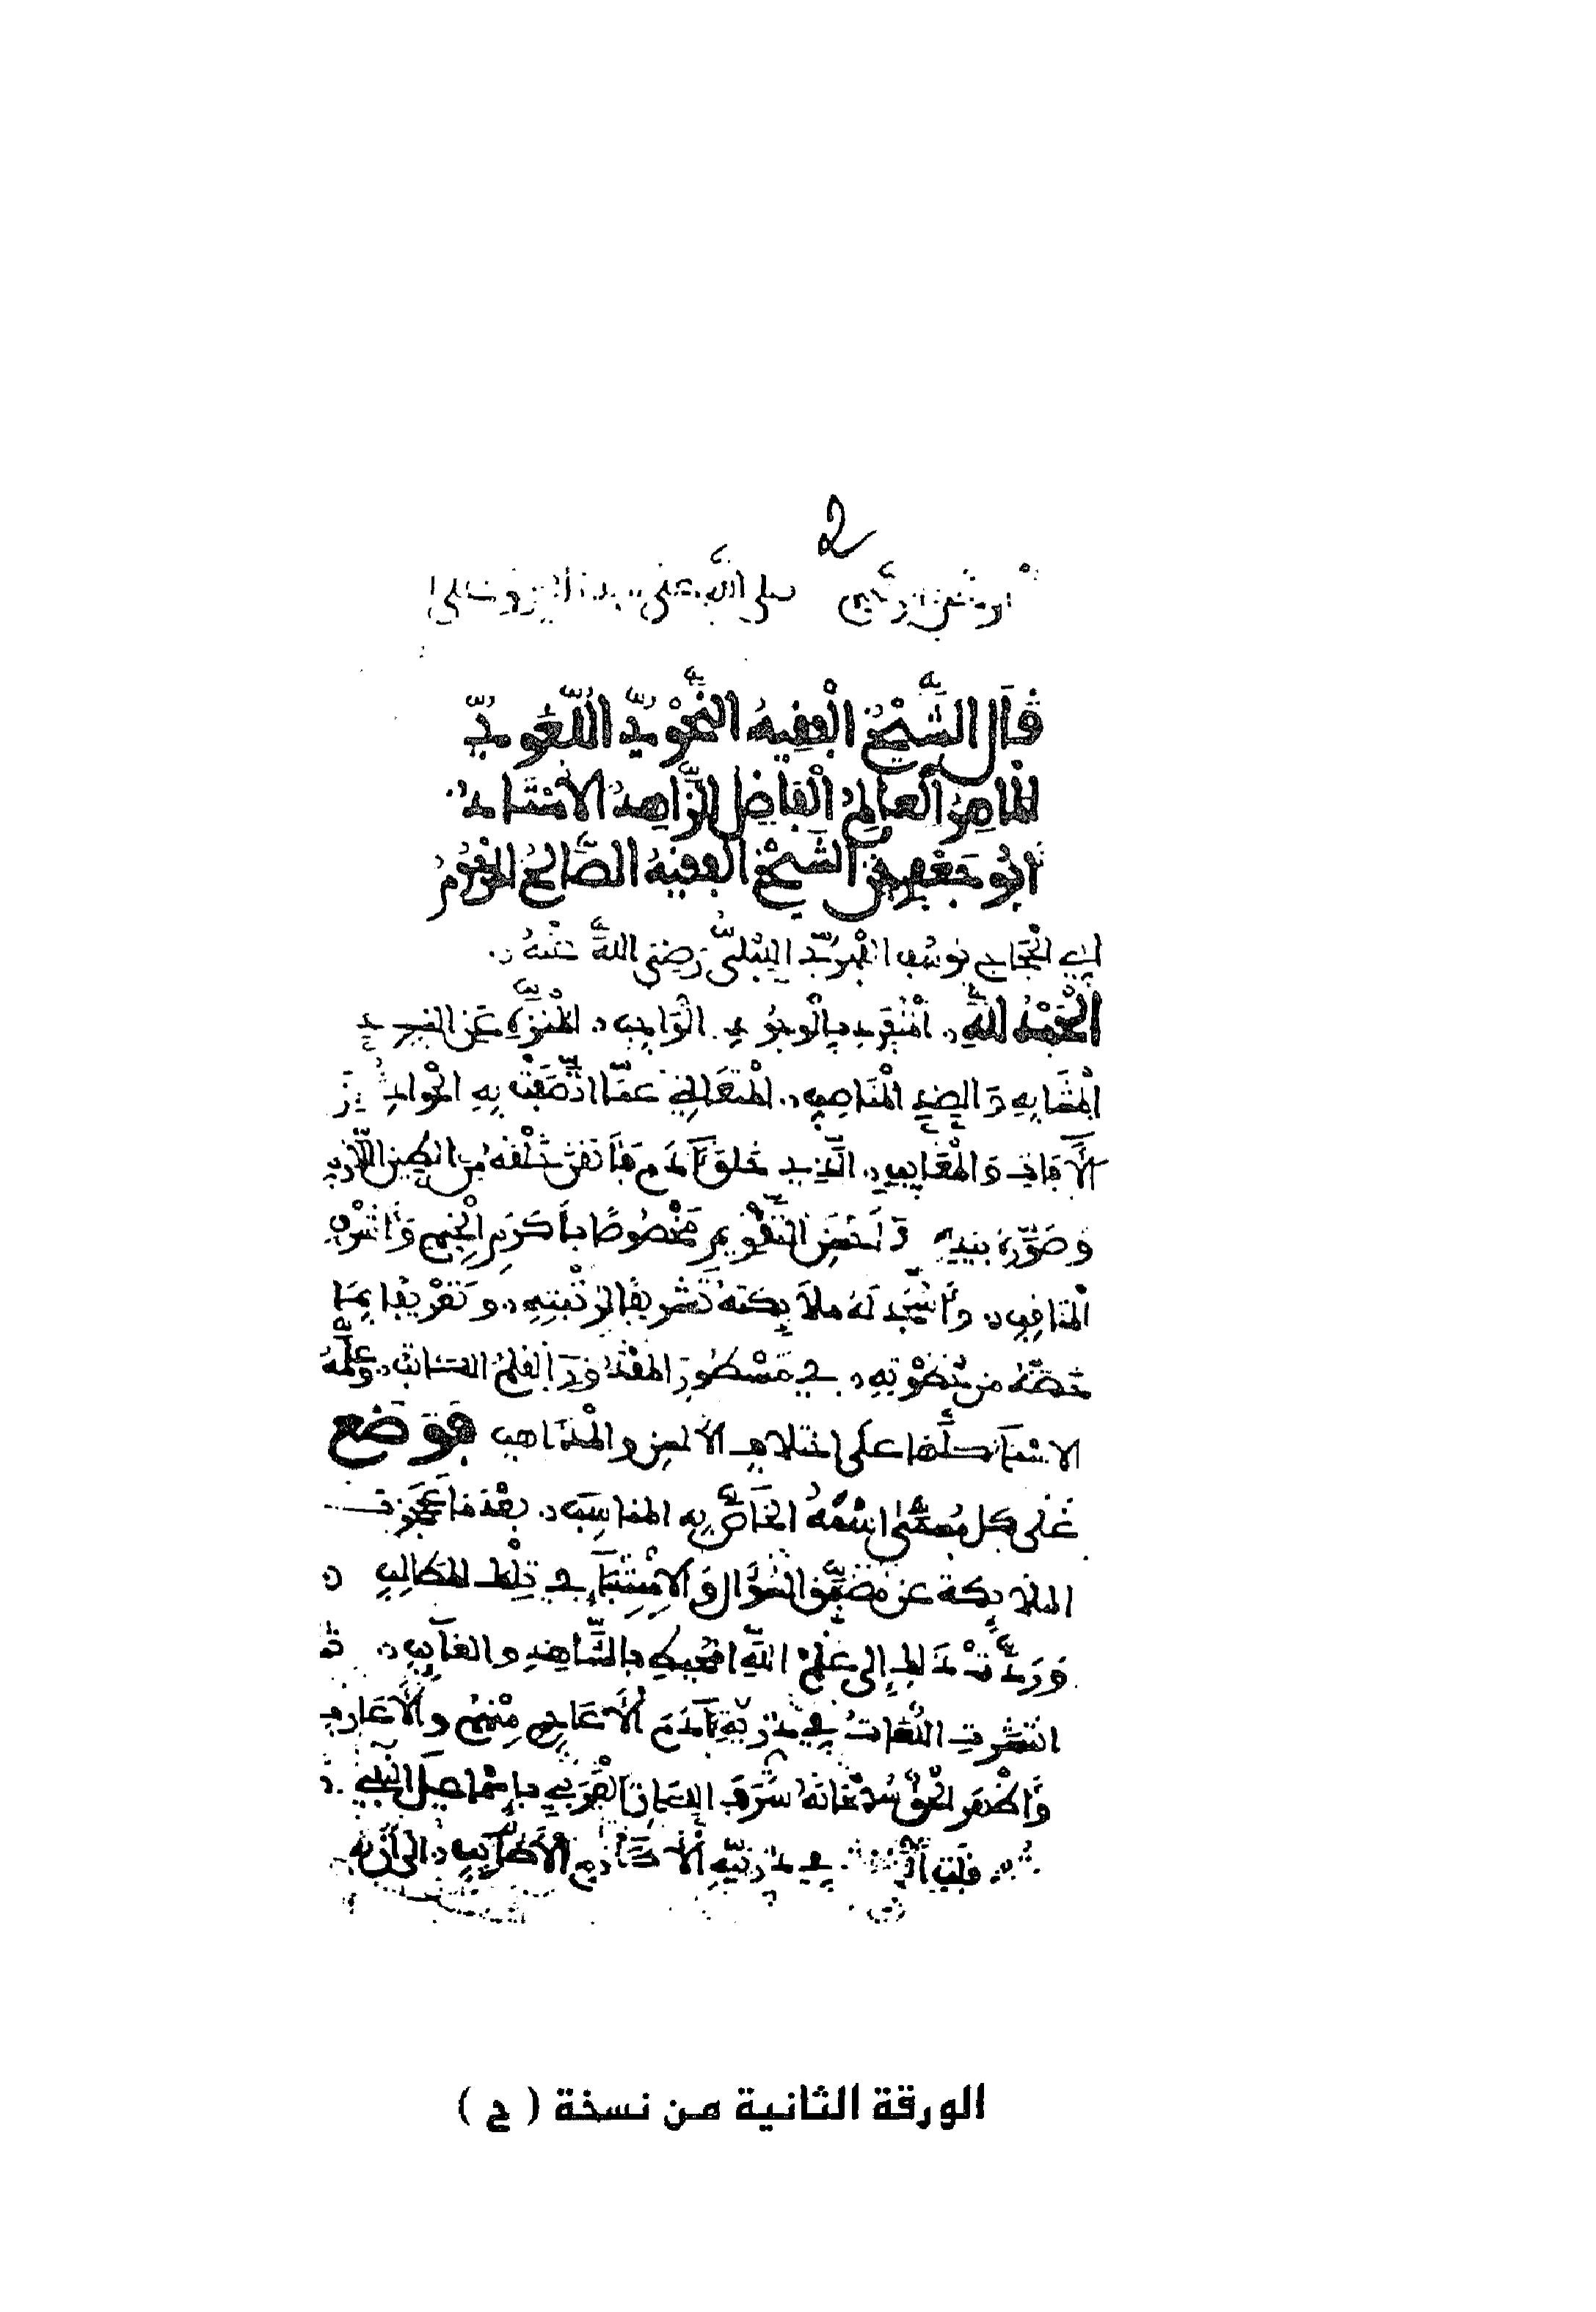 2
الرحمن الرحيم صلى الله على
قَالَ الشَّيْخُ الْفَقِيهُ النَّحْوِيُّ اللُّغَوِيُّ
الْمَاهِرُ الْعَالِمُ الْفَاضِلُ الزَّاهِدُ الْأُسْتَاذُ
أَبُو جَعْفَر بْنُ الشَّيْخِ الْفَقِيهِ الصَّالِحِ الْمَرْحُومِ
أَبِي الْحَجَّاجِ يُوسُف الْفِهْرِيّ اللَّبْلِيّ رَضِيَ اللهُ عَنْهُ
الْحَمْدُ لِلَّهِ الْمُنْفَرِدِ بِالْوُجُودِ الْوَاجِبِ الْمُنَزَّهِ عَنِ
الْمُشَابِهِ وَالضِّدِّ الْمُنَاصِبِ الْمُتَعَالِي عَمَّا اتَّصَفَتْ بِهِ الْحَوَادِثُ مِنَ
الْآفَاتِ وَالْمَعَايِبِ الَّذِي خَلَقَ آدَمَ فَأَتْقَنَ خَلْقَهُ مِنَ الطِّينِ اللَّازِبِ
وَصَوَّرَهُ بِيَدِهِ فِي أَحْسَنِ التَّقْوِيمِ مَخْصُوصًا بِأَكْرَمِ الْخِيَمِ وَأَشْرَفِ
الْمَنَاقِبِ وَأَسْجَدَ لَهُ مَلَائِكَتَهُ تَشْرِيفًا لِرُتْبَتِهِ وَتَعْرِيفًا بِمَا
خَصَّهُ مِنْ حُظْوَتِهِ فِي مَسْطُورِ الْمَقْدُورِ الْقَلَمُ الْكَاتِبُ وَعَلَّمَهُ
الْأَسْمَاءَ كُلَّهَا عَلَى اخْتِلَافِ الْأَلْسُنِ وَالْمَذَاهِبِ فَوَضَعَ
عَلَى كُلِّ مُسَمًّى اسْمَهُ الْخَاصَّ بِهِ الْمُنَاسِبَ بَعْدَمَا عَجَزَتِ
الْمَلَائِكَةُ عَنْ السُّؤَالِ فِي تِلْكَ الْمَطَالِبِ
وَرَدَّتْ ذَلِكَ إِلَى عِلْمِ اللهِ الْمُحِيطِ بِالشَّاهِدِ وَالْغَائِبِ ثُمَّ
انْتَشَرَتِ اللُّغَاتُ فِي ذُرِّيَّةِ آدَمَ الْأَعَاجِمِ مِنْهُمْ وَالْأَعَارِبِ
وَأَظْهَرَ الْحَقُّ سُبْحَانَهُ شَرَفَ اللِّسَانِ الْعَرَبِيِّ بِإِسْمَاعِيلَ النَّبِيِّ
فِي ذُرِّيَّتِهِ الْأَكَارِمِ الْأَطَايِبِ إِلَى أَنْ
الورقة الثانية من نسخة ( ح )